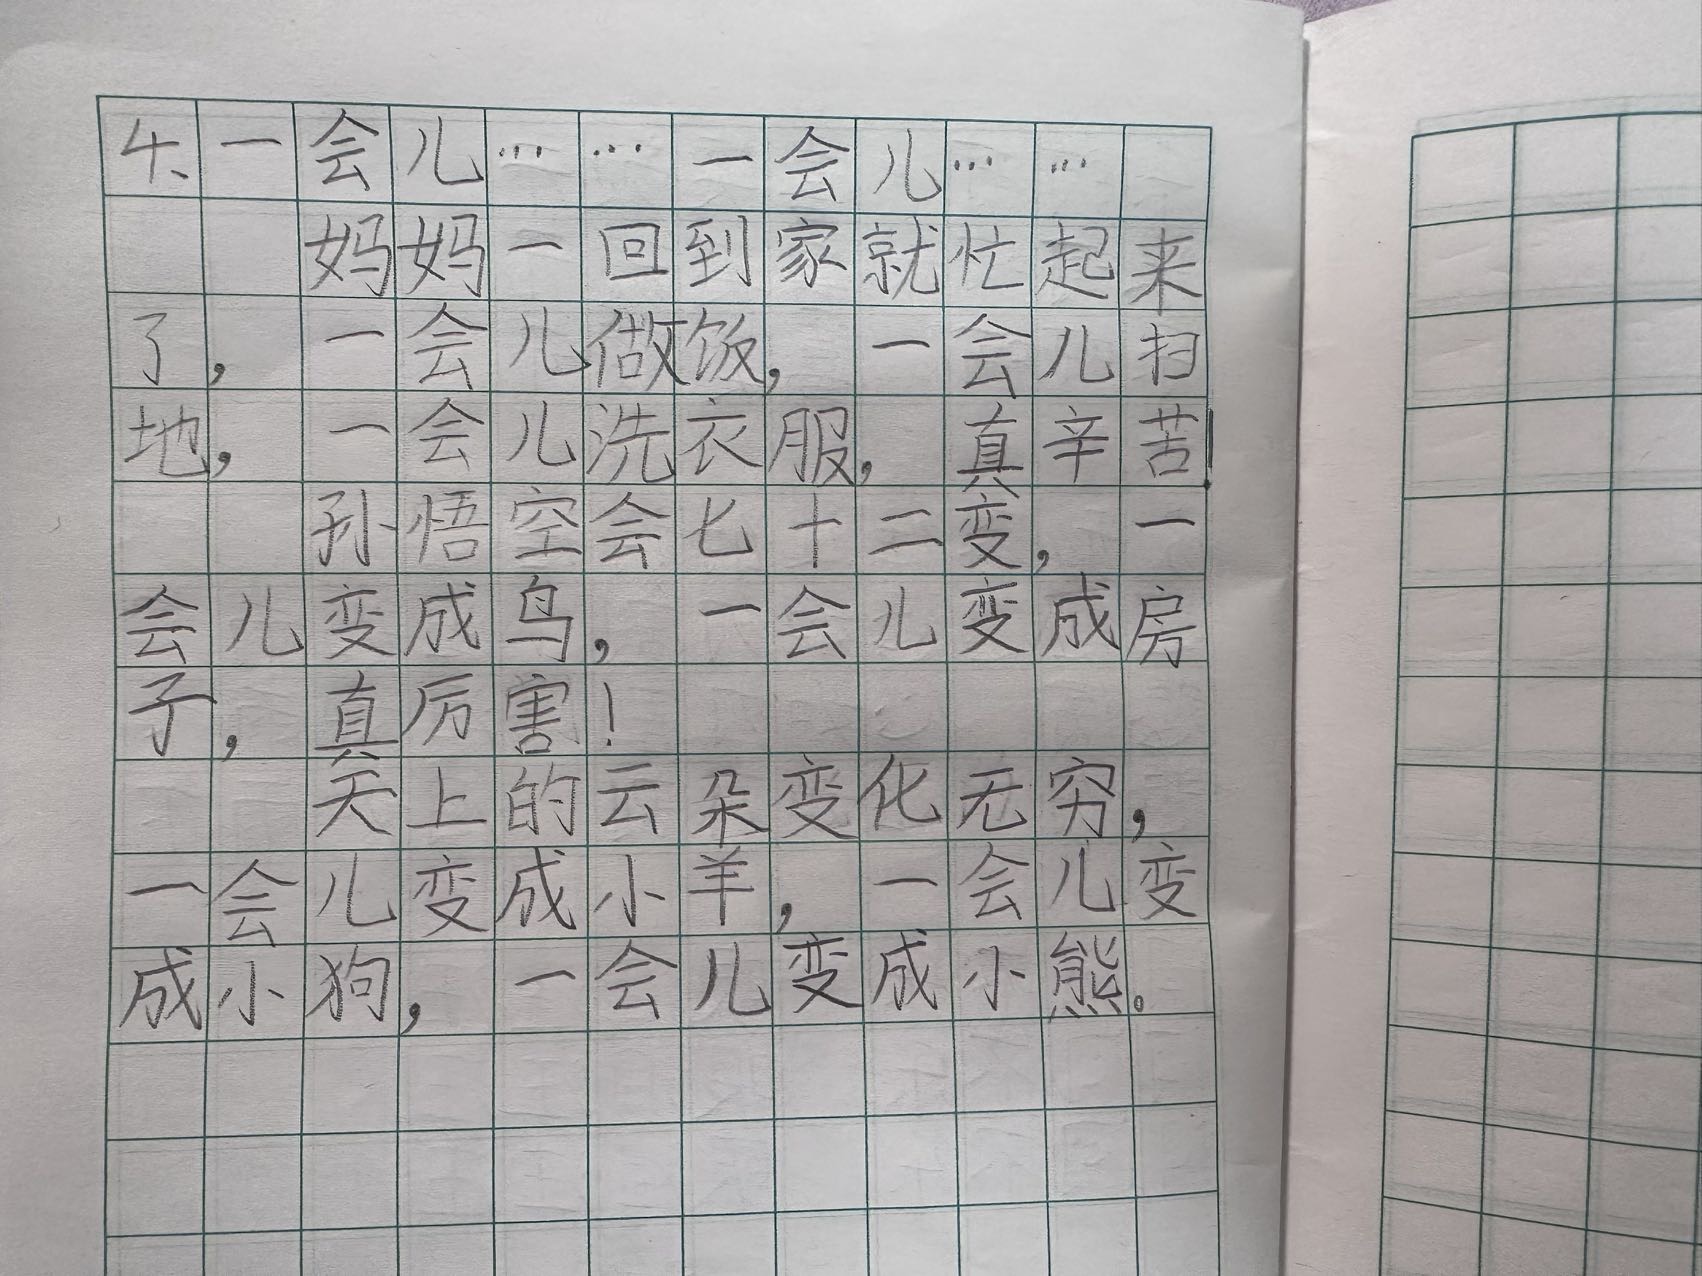 4、一会儿……一会儿……
妈妈一回到家就忙起来
了，一会儿做饭，一会儿扫
地，一会儿洗衣服，真辛苦！
孙悟空会七十二变，一
会儿变成鸟，一会儿变成房
子，真厉害！
天上的云朵变化无穷，
一会儿变成小羊，一会儿变
成小狗，一会儿变成小熊。